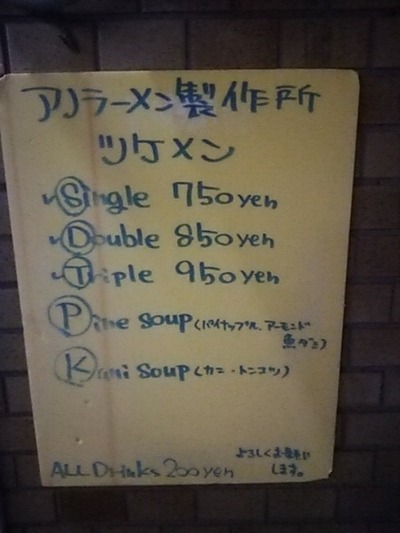 アノラーメン製作所
ツケメン
Single 750yen
Double 850yen
Triple 950yen
Pine soup (パイナップル、アーモンド
魚ダシ)
Kani soup (カニ・トンコツ)
ALL Drinks 200yen
よろしくお願い
します。